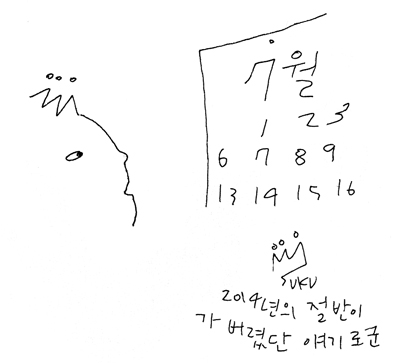 7월
1 2 3
6 7 8 9
13 14 15 16
SUKU
2014년의 절반이
가 버렸단 얘기로군